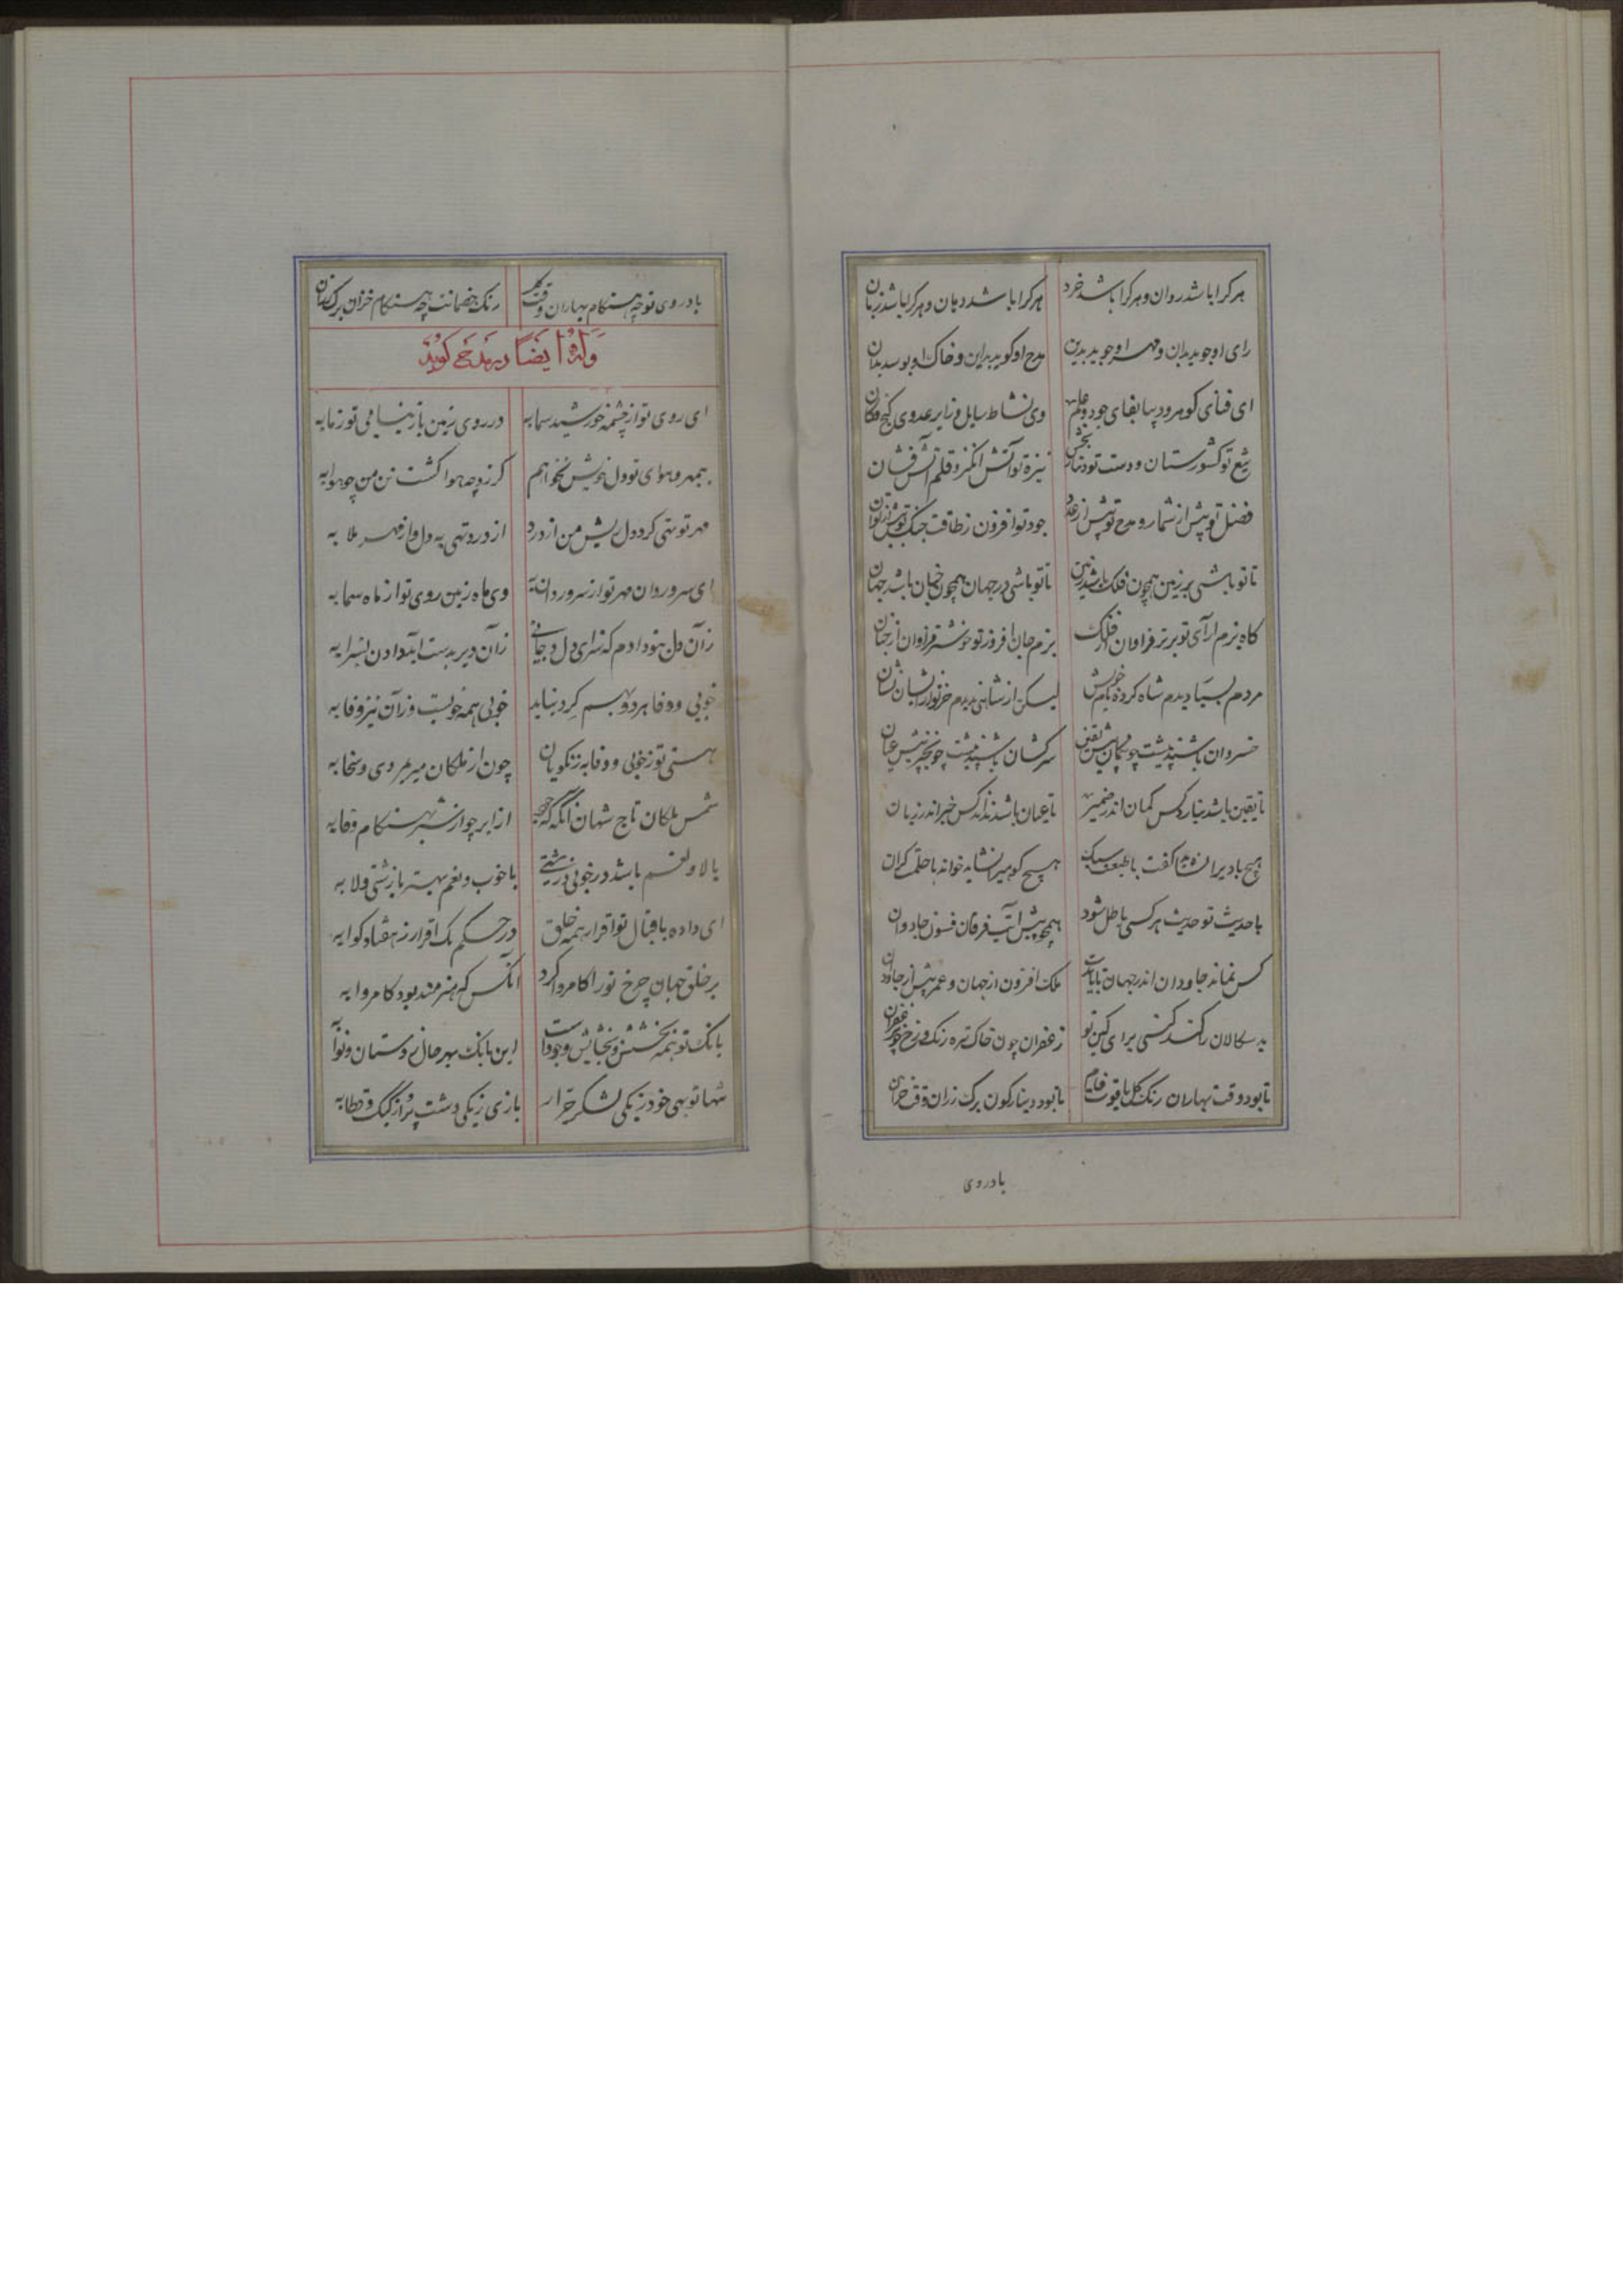 هر کرا باشد روان و هر کرا باشد خرد هر کرا باشد دهان و هر کرا باشد زبان
رای او جوید بدان و مهر او جوید بدین مدح او کوید بدین و خاک او بوسد بدان
ای فنای کوهر و دیبا بقای جود و علم وی نشاط سایل و زایر عدوی کنج و کان
تیغ تو کشورستان و دست تو دینار بخش نیزه تو آتش انکیز و قلم آتش فشان
فضل تو پیش از شمار و مدح تو پیش از عدد جود تو افزون ز طاقت جنک تو بیش از توان
تا تو باشی بر زمین همچون فلک باشد زمین تا تو باشی در جهان همچون جنان باشد جهان
کاه بزم آرای تو برتر فراوان از فلک بزم جان افروز تو خوشتر فراوان از جنان
مردم بسیار دیدم شاه کرده نام خویش لیکن از شاهی ندیدم جز تو را زیشان نشان
خسروان باشند پیشت چون کمان پیش یقین سرکشان باشند پیشت چون خبر پیش عیان
تا یقین باشد نیارد کس کمان اندر ضمیر تا عیان باشد نداند کس خبر اندر زبان
هیچ باد بزان نشاید کفت با طبعت سبک هیچ کوهی را نشاید خواند با حلمت کران
با حدیث تو حدیث هر کسی باطل شود همچو پیش آیت فرقان فسون جادوان
کس نماند جاودان اندر جهان بایدت ملک افزون از جهان و عمر بیش از جاودان
بد سکالان را کند کشی برای کین تو زعفران چون خاک تیره رنک و رخ چون زعفران
تا بود وقت بهاران رنک کل یاقوت فام تا بود دینار کون برک رزان وقت خزان
با دروی
باد روی تو چه هنکام بهاران وقت کل رنک خصمانت چه هنکام خزان برک رزان
وله ایضا در مدح کوید
ای روی تو از چشمه خورشید سما به در روی زمین باز نیابی تو ز ما به
بیمهر و هوای تو دل خویش نخواهم کز زو چه هوا کشت تن من چه هوا به
مهر تو تهی کرد دل ریش من از درد از درد تهی به دل و از مهر ملا به
ای سرو روان مهر تو از سرو روان به وی ماه زمین روی تو از ماه سما به
زان دل بتو دادم که سزای دل و جانی زان دیر بدست آید دادن بسزا به
خوبی و وفا هر دو بهم کرد نباید خوبی همه خوبست وز آن نیز وفا به
هستی تو ز خوبی و وفا به ز نکویان چون از ملکان میر بمردی و سخا به
شمس ملکان تاج شهان آنکه که جود از ابر چو از شیر بهنکام وغا به
با لا و نعم باشد در خوبی و زشتی با خوب و نعم بهتر با زشتی و لا به
ای داده باقبال تو اقرار همه خلق در حکم یک اقرار ز هفتاد کوا به
بر خلق جهان چرخ تو را کامروا کرد آنکس که هنرمند بود کامروا به
بانک تو همه بخشش و بخشایش و جود است این بانک بهر حال ز دستان و نوا به
تنها تو بهی خود ز یکی لشکر جرار بازی ز یکی دشت پر از کبک و قطا به